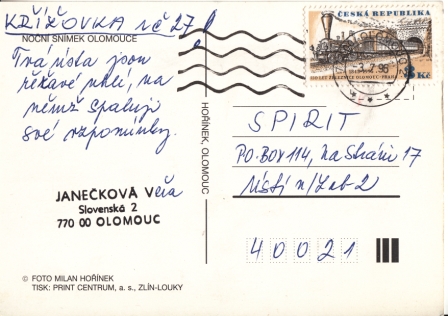 KŘÍŽOVKA č 27!
NOČNÍ SNÍMEK OLOMOUCE
Tvá ústa jsou
řeřavé uhlí, na
němž spaluji
své vzpomínky.
JANEČKOVÁ Věra
Slovenská 2
770 00 OLOMOUC
© FOTO MILAN HOŘÍNEK
TISK: PRINT CENTRUM, a. s., ZLÍN-LOUKY
HOŘÍNEK, OLOMOUC
ČESKÁ REPUBLIKA
8 Kč
SPIRIT
PO.BOX 114, Na Stráni 17
Ústí n/Lab-2
40021